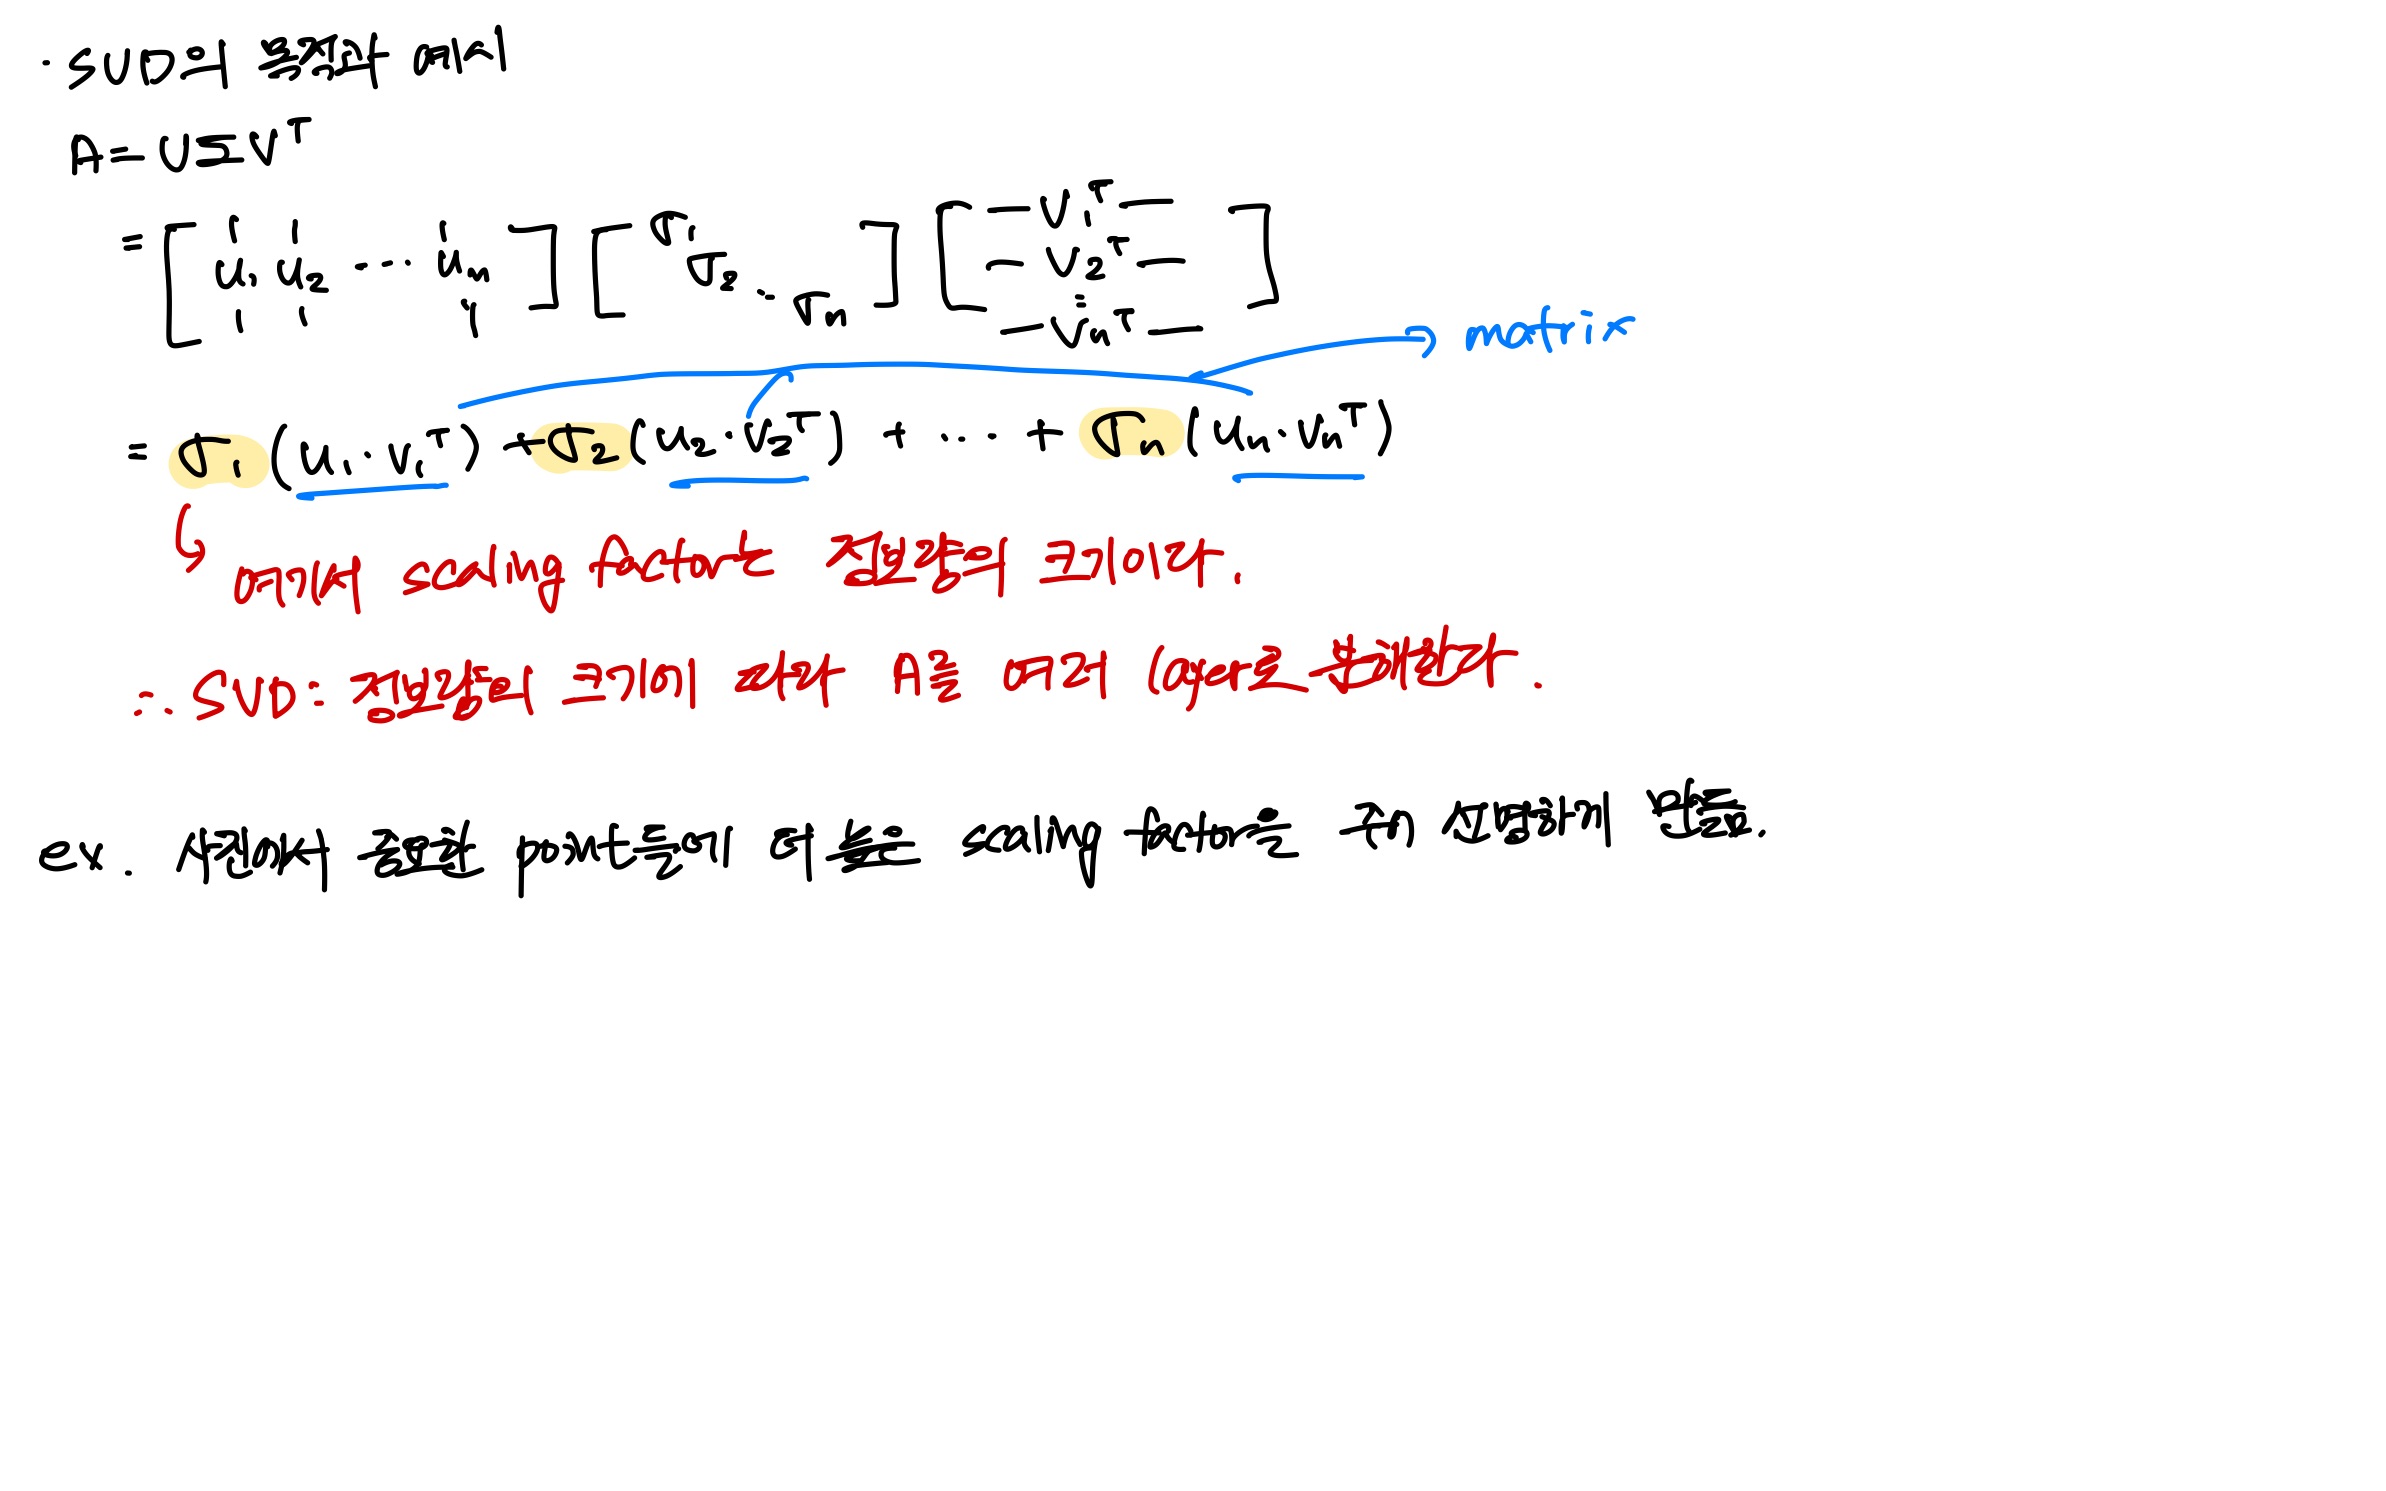 · SVD의 본질적 의미
A = UΣVᵀ
= [ u₁ u₂ ⋯ uₙ ] [ σ₁ σ₂ ⋱ σₙ ] [ — v₁ᵀ — — v₂ᵀ — ⋮ — vₙᵀ — ]
matrix
= σ₁(u₁·v₁ᵀ) + σ₂(u₂·v₂ᵀ) + ⋯ + σₙ(uₙ·vₙᵀ)
여기서 scaling factor는 정보량의 크기이다.
∴ SVD: 정보량의 크기에 따라 A를 여러 layer로 분해한다.
ex. 사진에서 중요한 point들의 더 높은 scaling factor로 주어 선명하게 만듦.